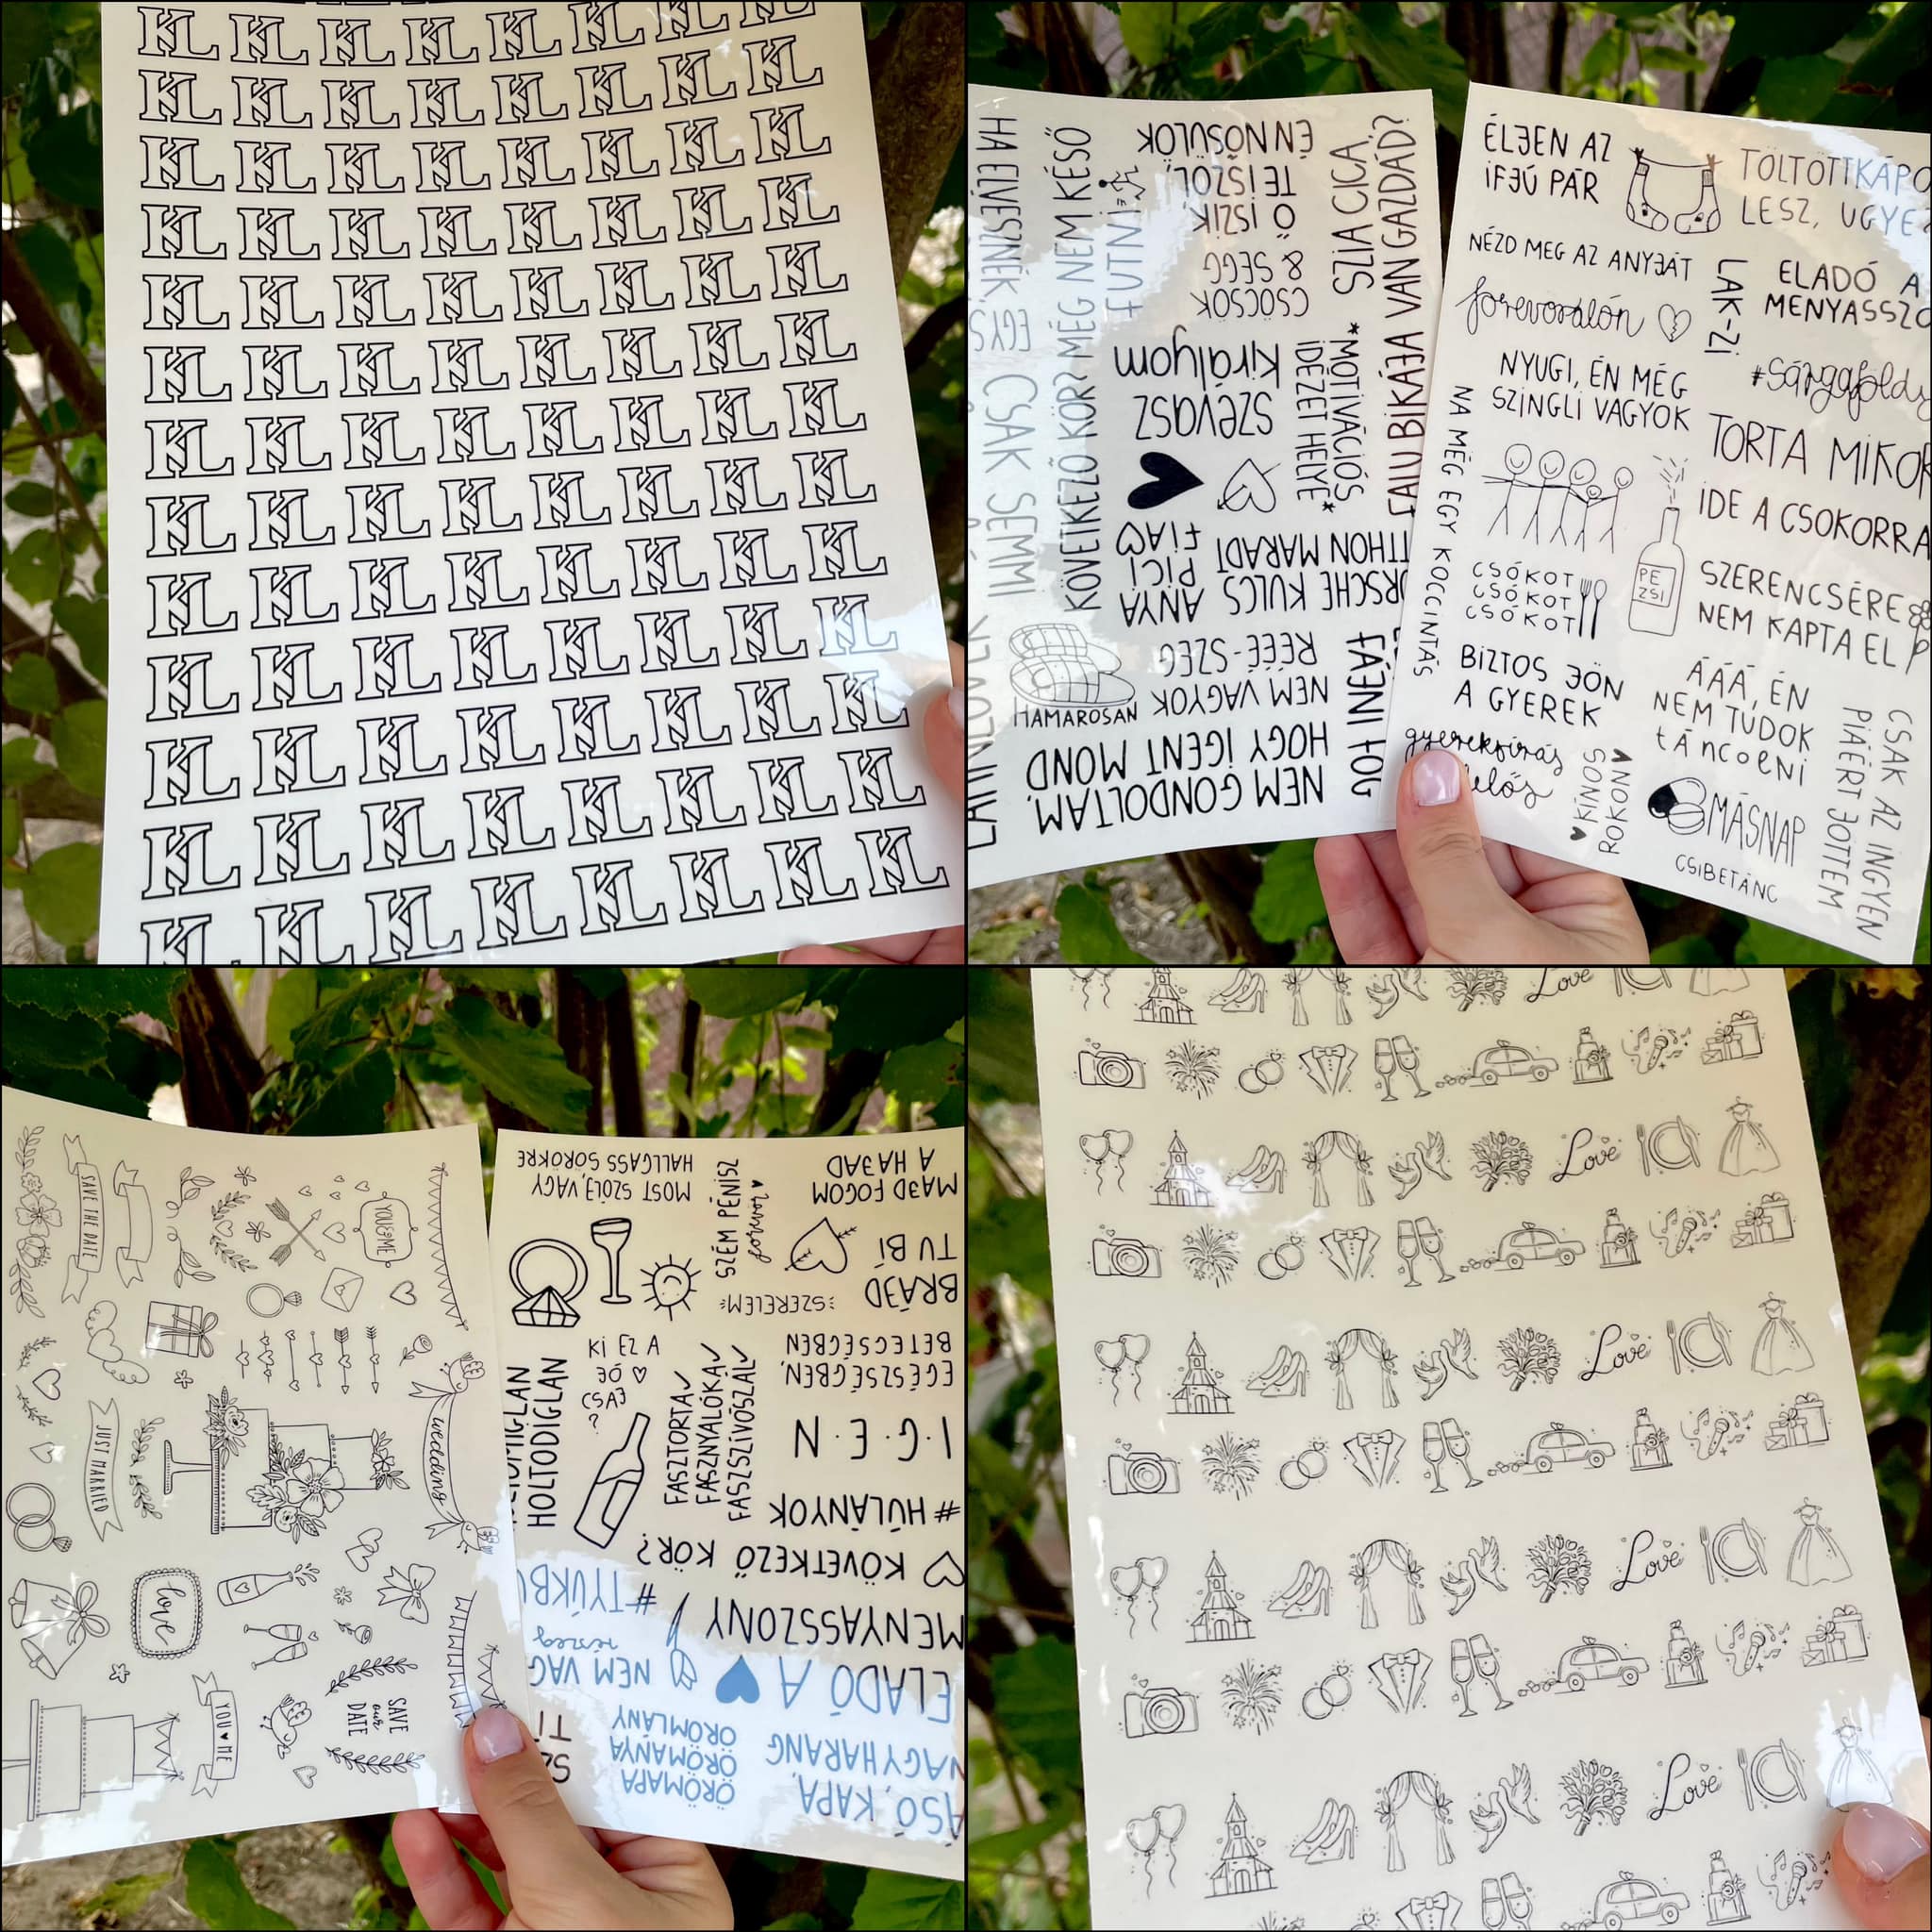 KL KL KL KL KL KL KL KL
KL KL KL KL KL KL KL KL
KL KL KL KL KL KL KL KL
KL KL KL KL KL KL KL KL
KL KL KL KL KL KL KL KL
KL KL KL KL KL KL KL KL
KL KL KL KL KL KL KL KL
KL KL KL KL KL KL KL KL
KL KL KL KL KL KL KL KL
KL KL KL KL KL KL KL KL
KL KL KL KL KL KL KL KL
KL KL KL KL KL KL KL KL
KL KL KL KL KL KL KL KL
HA ELVESZNÉK, EGYS
CSAK SEMMI
KÖVETKEZŐ KÖR?
MÉG NEM KÉSŐ
FUTNI
ÉN NŐSÜLÖK
TE ISZOL,
Ő ISZIK
CSÖCSÖK
& SEGG
SZIA CICA,
VAN GAZDÁD?
szevasz
királyom
*MOTIVÁCIÓS
IDÉZET HELYE*
FALU BIKÁJA
ANYA
PICI
FIA
ORSCHE KULCS
TTHON MARADT
HAMAROSAN
NEM VAGYOK
RÉÉÉ-SZEG
NEM GONDOLTAM,
HOGY IGENT MOND
FÁJNI FOG
ÉLJEN AZ
IFJÚ PÁR
TÖLTÖTTKÁPO
LESZ, UGYE
NÉZD MEG AZ ANYJÁT
LAK-ZI
ELADÓ A
MENYASSZO
forevorálón
NYUGI, ÉN MÉG
SZINGLI VAGYOK
#sárgaföldi
NA MÉG EGY KOCCINTÁS
TORTA MIKOR
IDE A CSOKORRA
PE
ZSI
CSÓKOT
CSÓKOT
CSÓKOT
SZERENCSÉRE
NEM KAPTA EL
BIZTOS JÖN
A GYEREK
ÁÁÁ, ÉN
NEM TUDOK
táncolni
gyereksírás
elős
KÍNOS
ROKON
MÁSNAP
CSIBETÁNC
CSAK AZ INGYEN
PIÁÉRT JÖTTEM
SAVE THE DATE
YOU&ME
JUST MARRIED
wedding
love
YOU ME
SAVE
our
DATE
MOST SZÓLJ, VAGY
HALLGASS SÖRÖKRE
SZÉM PÉNISZ
forevör
MAJD FOGOM
A HAJAD
BRÁJD
TU BÍ
SZERELEM
KI EZ A
JÓ
CSAJ
?
EGÉSZSÉGBEN,
BETEGSÉGBEN
HOLTODIGLAN
FASZTORTA
FASZNYALÓKA
FASZSZÍVÓSZÁL
I·G·E·N
#HÚLÁNYOK
KÖVETKEZŐ KÖR?
#TYÚKBU
ELADÓ A
MENYASSZONY
NEM VAG
részeg
ÖRÖMAPA
ÖRÖMANYA
ÖRÖMLÁNY
ÁSÓ, KAPA,
NAGYHARANG
Love
Love
Love
Love
Love